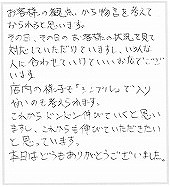 お客様の観点から物事を考えて
なられると思います。
その日、その日のお客様の状況を見て
対応していただけていますし、いろんな
人に合わせていけていいお店でござ
います
店内の様子も「シンプル」で入り
やすいのも考えられます。
これからどんどん伸びていくと思い
ますし、これからも伸びていただきたい
と思っています。
本日はどうもありがとうございました。